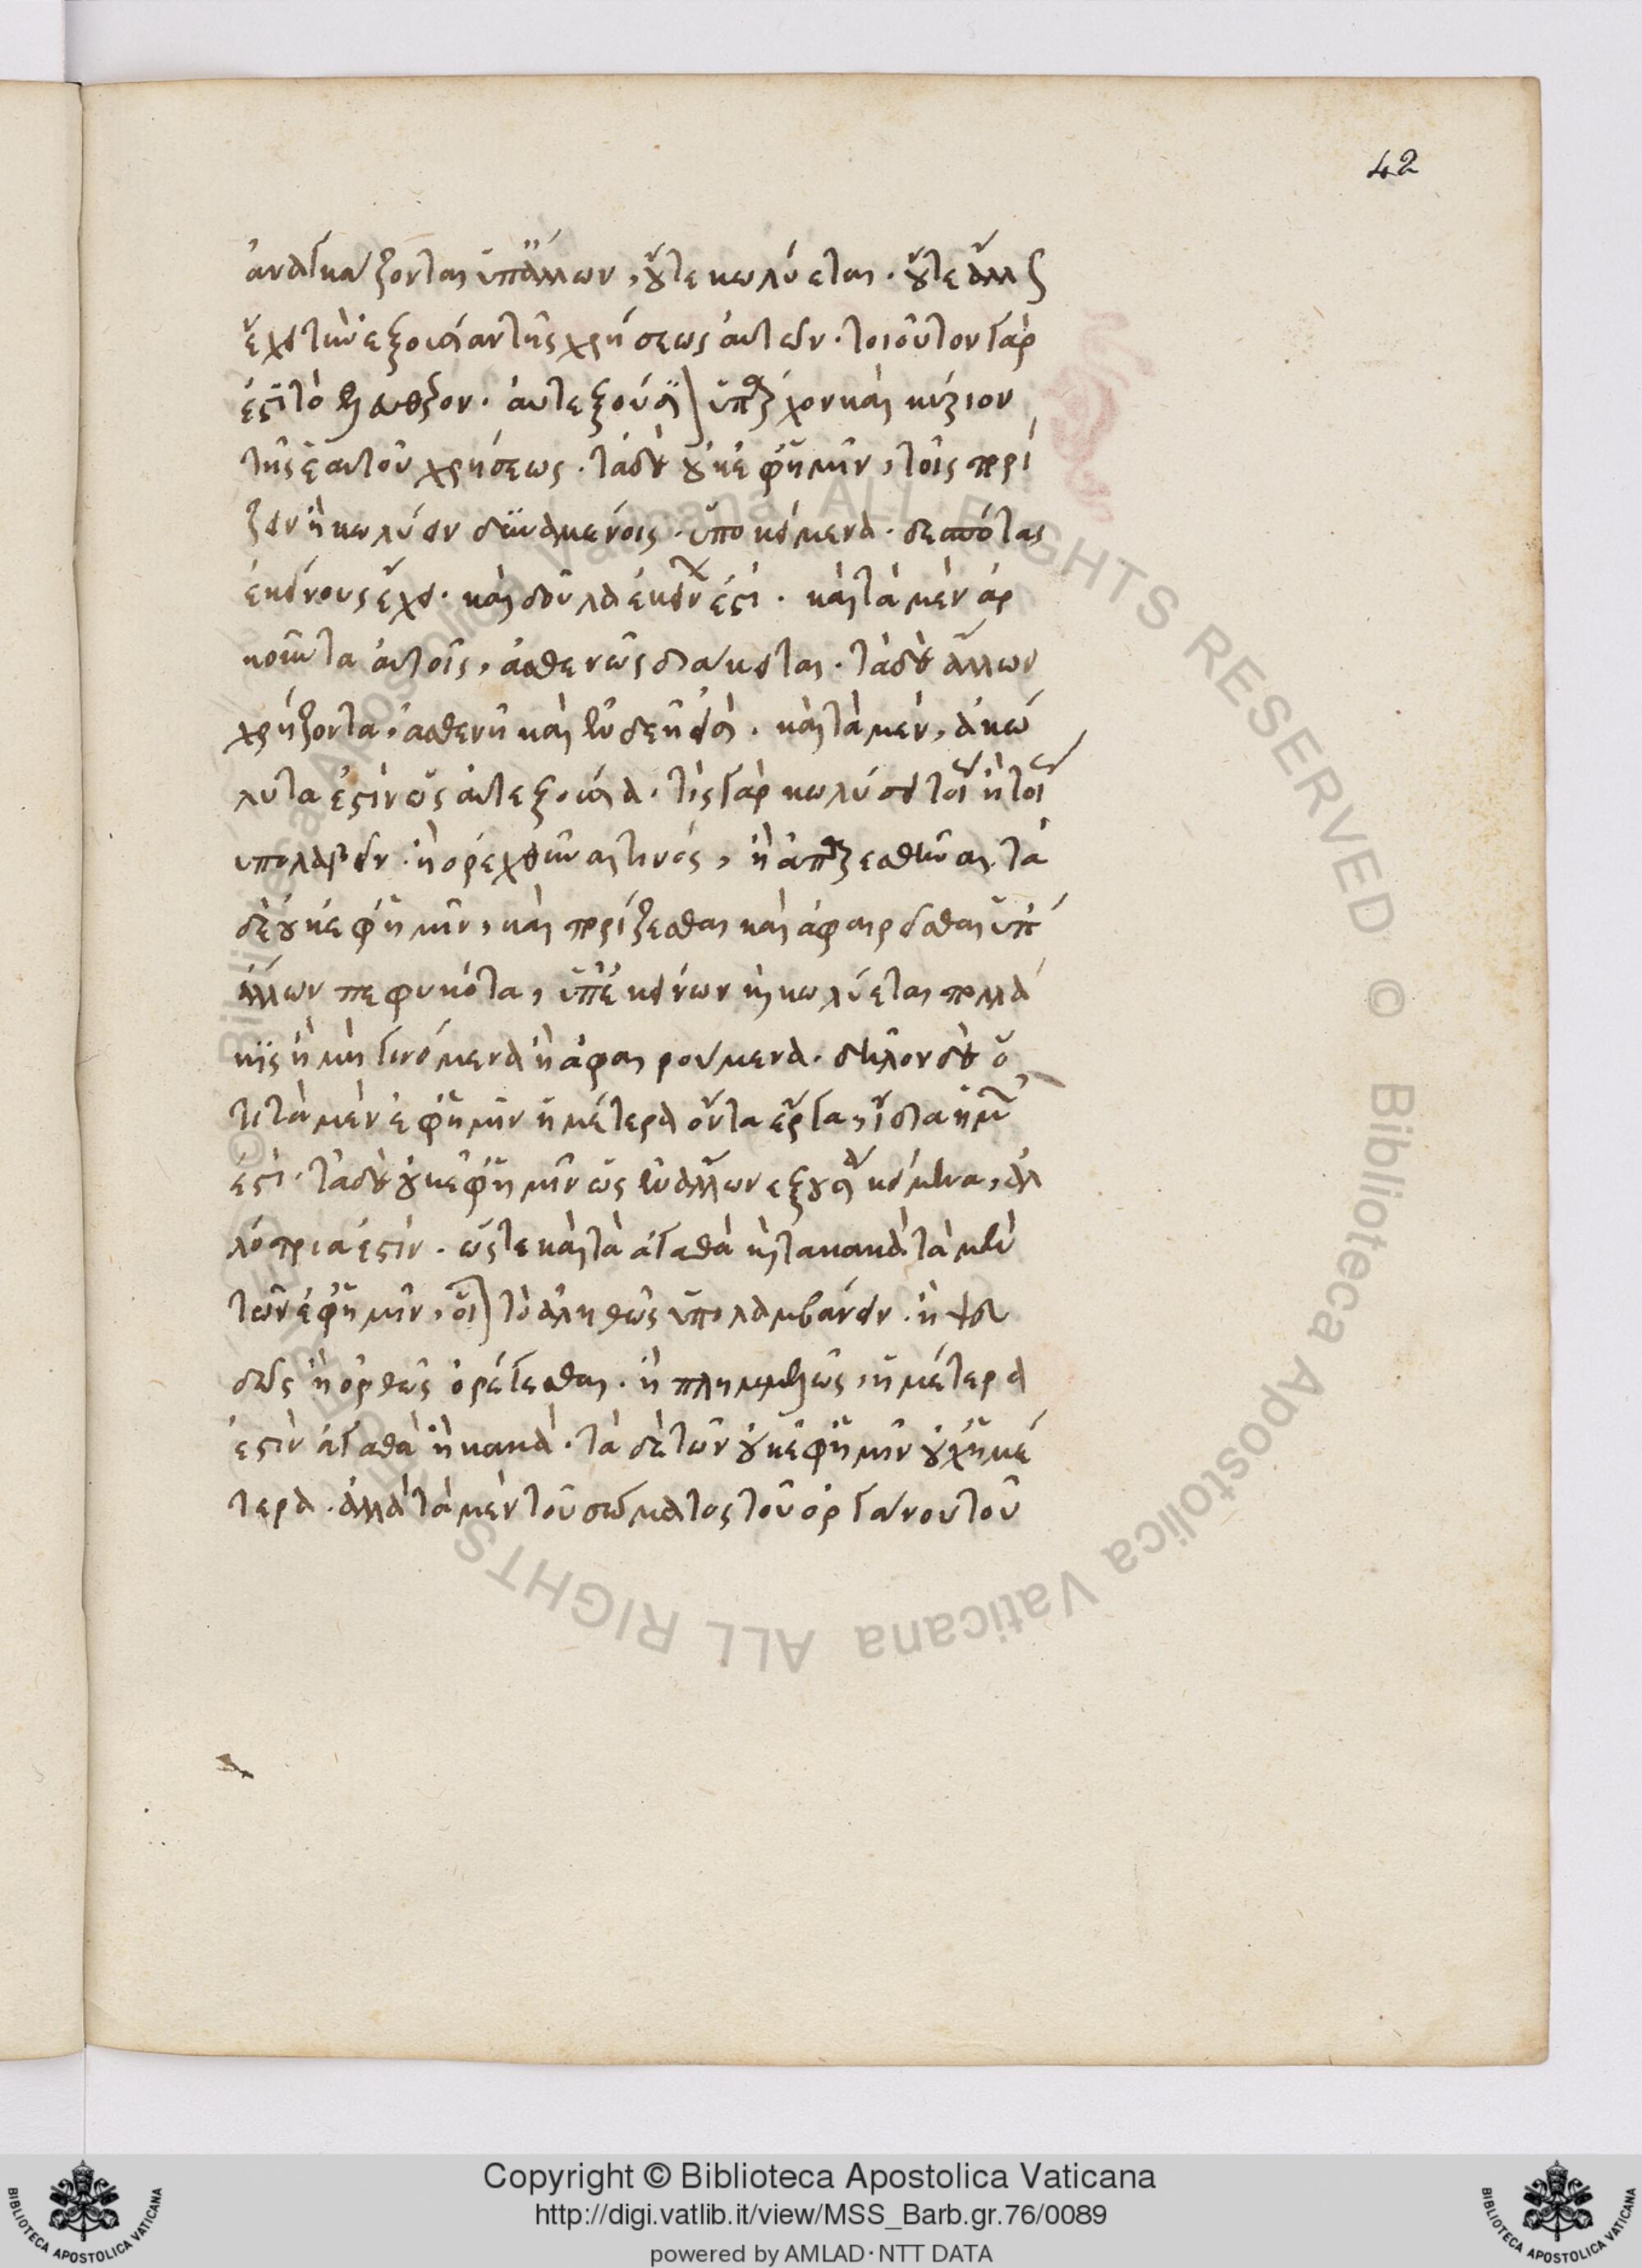 42
ἀναγκάζονται ὑπ' ἄλλων, οὔτε κωλύεται. οὔτε ἄλλος
ἔχει τὴν ἐξουσίαν τῆς χρήσεως αὐτῶν. τοιοῦτον γὰρ
ἐστὶ τὸ ἐλεύθερον. αὐτεξούσιον ὑπάρχον καὶ κύριον
τῆς ἑαυτοῦ χρήσεως. τὰ δὲ οὐκ ἐφ' ἡμῖν, τοῖς παρέ
χειν ἢ κωλύειν δυναμένοις. ὑποκείμενα. δεσπότας
ἐκείνους ἔχει. καὶ δοῦλα ἐκείνων ἐστί. καὶ τὰ μὲν ἀρ
κοῦντα αὐτοῖς, ἀσθενῶς διάκειται. τὰ δὲ ἄλλων
χρήζοντα. ἀσθενῆ καὶ ἐνδεῆ εἰσι. καὶ τὰ μὲν, ἀκώ
λυτα ἐστὶν ὡς αὐτεξούσια. τίς γὰρ κωλύσει τοῖον ἢ τοῖον
ὑπολαβεῖν. ἢ ὀρεχθῆναι τινός, ἢ ἀπαρεσθῆναι. τὰ
δὲ οὐκ ἐφ' ἡμῖν, καὶ παρέχεσθαι καὶ ἀφαιρεῖσθαι ὑπ'
ἄλλων πεφυκότα, ὑπ' ἐκείνων καὶ κωλύεται πολλά
κις ἢ μὴ γινόμενα ἢ ἀφαιρούμενα. δῆλον δὲ ὅ
τι τὰ μὲν ἐφ' ἡμῖν ἡμέτερα ὄντα ἔργα, ἴδια ἡμῶν
ἐστι. τὰ δὲ οὐκ ἐφ' ἡμῖν ὡς ἐν ἄλλων ἐξουσίᾳ κείμενα, ἀλ
λότρια ἐστίν. ὥστε καὶ τὰ ἀγαθὰ καὶ τὰ κακὰ. τὰ μὲν
τῶν ἐφ' ἡμῖν, οἷον τὸ ἀληθῶς ὑπολαμβάνειν. ἢ ψευ
δῶς ἢ ὀρθῶς ὀρέγεσθαι. ἢ πλημμελῶς, ἡμέτερα
ἐστὶν ἀγαθὰ ἢ κακά. τὰ δὲ τῶν οὐκ ἐφ' ἡμῖν οὐχ ἡμέ
τερα. ἀλλὰ τὰ μὲν τοῦ σώματος τοῦ ὀργάνου τοῦ
Copyright © Biblioteca Apostolica Vaticana
http://digi.vatlib.it/view/MSS_Barb.gr.76/0089
powered by AMLAD·NTT DATA
BIBLIOTECA APOSTOLICA VATICANA
BIBLIOTECA APOSTOLICA VATICANA
© Biblioteca Apostolica Vaticana ALL RIGHTS RESERVED © Biblioteca Apostolica Vaticana ALL RIGHTS RESERVED